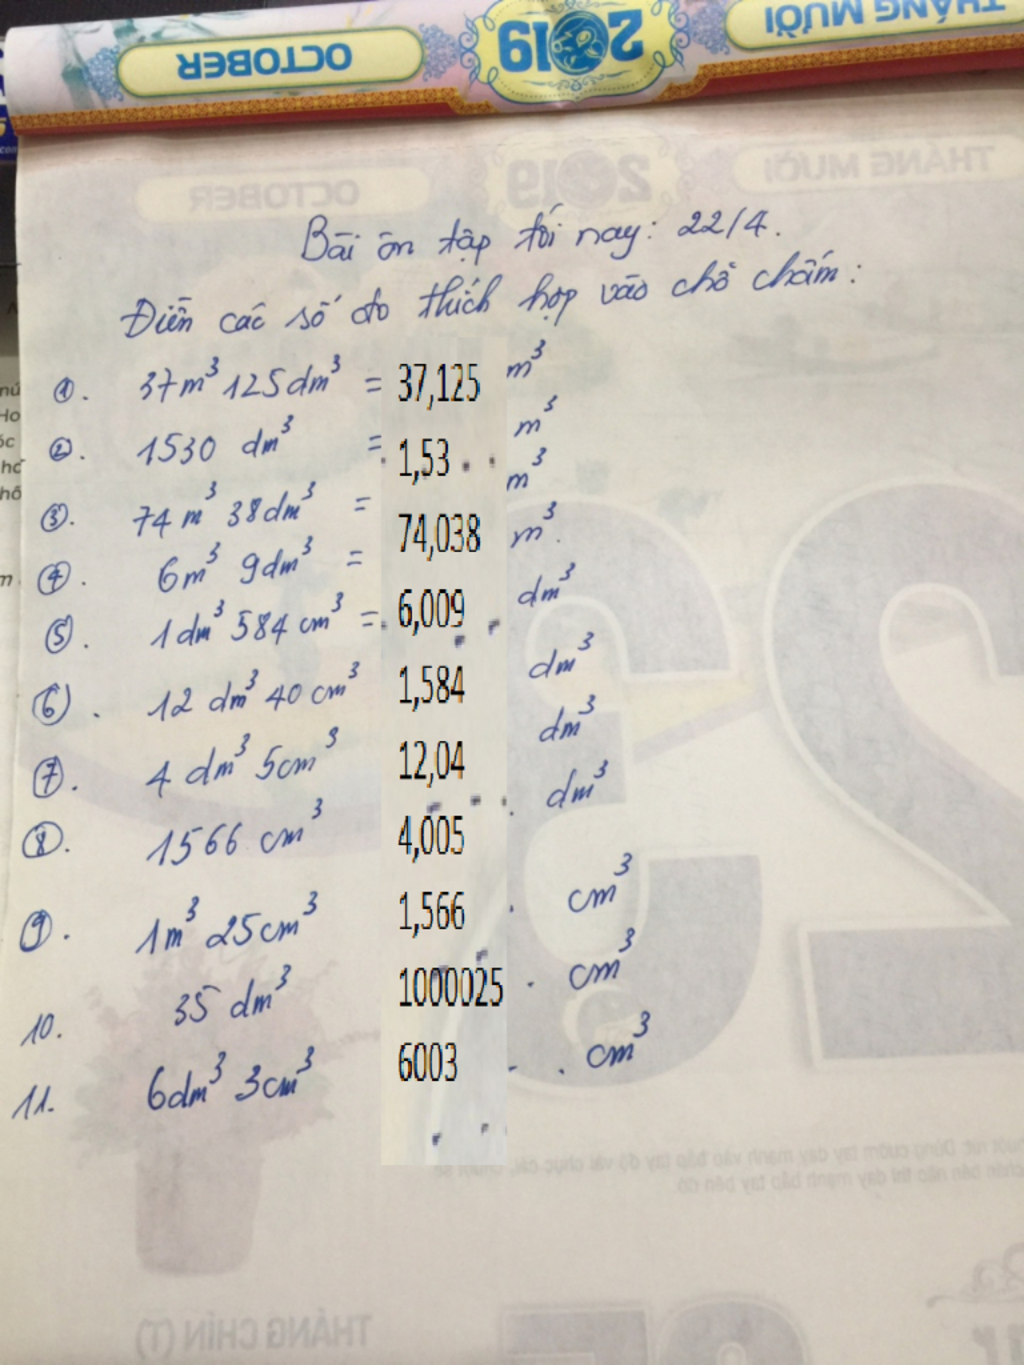 OCTOBER 2019 THÁNG MƯỜI
OCTOBER 2019 THÁNG MƯỜI
Bài ôn tập tối nay: 22/4.
Điền các số đo thích hợp vào chỗ chấm:
①. 37m³ 125dm³ = 37,125 m³
②. 1530 dm³ = 1,53 m³
③. 74 m³ 38dm³ = 74,038 m³
④. 6m³ 9dm³ = 6,009 m³.
⑤. 1dm³ 584 cm³ = 1,584 dm³
⑥. 12 dm³ 40 cm³ 12,04 dm³
⑦. 4 dm³ 5cm³ 4,005 dm³
⑧. 1566 cm³ 1,566 dm³
⑨. 1m³ 25cm³ 1000025 . cm³
10. 35 dm³ . cm³
11. 6dm³ 3cm³ 6003 . cm³
THÁNG CHÍN (T)